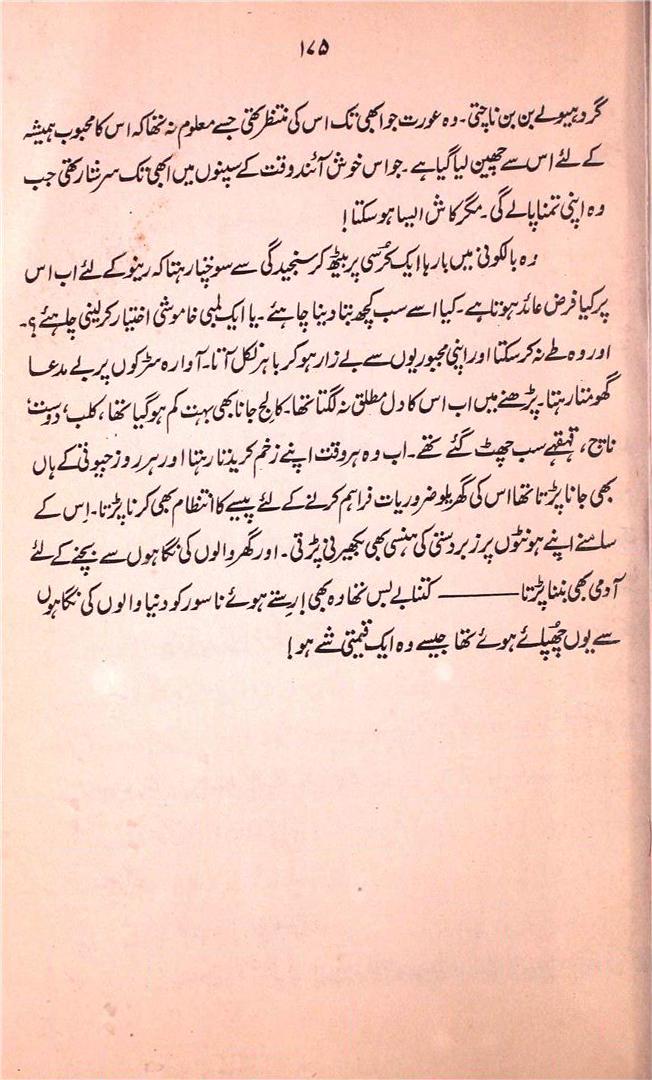 ۱۷۵
گرد ہیولے بن بن ناچتی۔ وہ عورت جو ابھی تک اس کی منتظر تھی جسے معلوم نہ تھا کہ اس کا محبوب ہمیشہ
کے لئے اس سے چھین لیا گیا ہے۔ جو اس خوش آئند وقت کے سپنوں میں ابھی تک سرشار تھی جب
وہ اپنی تمنا پالے گی۔ مگر کاش ایسا ہو سکتا!
وہ بالکونی میں بارہا ایک کرُسی پر بیٹھ کر سنجیدگی سے سوچتا رہتا کہ رینو کے لئے اب اس
پر کیا فرض عائد ہوتا ہے۔ کیا اسے سب کچھ بتا دینا چاہئے۔ یا ایک لمبی خاموشی اختیار کر لینی چاہئے؟۔
اور وہ طے نہ کر سکتا اور اپنی مجبوریوں سے بے زار ہو کر باہر نکل آتا۔ آوارہ سڑکوں پر بے مدعا
گھومتا رہتا۔ پڑھنے میں اب اس کا دل مطلق نہ لگتا تھا۔ کالج جانا بھی بہت کم ہو گیا تھا، کلب، دوست،
ناچ، قہقہے سب چھٹ گئے تھے۔ اب وہ ہر وقت اپنے زخم کریدتا رہتا اور ہر روز جیونی کے ہاں
بھی جانا پڑتا تھا اس کی گھریلو ضروریات فراہم کرنے کے لئے پیسے کا انتظام بھی کرنا پڑتا۔ اِس کے
سامنے اپنے ہونٹوں پر زبردستی کی ہنسی بھی بکھیرنی پڑتی۔ اور گھر والوں کی نگاہوں سے بچنے کے لئے
آدمی بھی بننا پڑتا ——— کتنا بے بس تھا وہ بھی! رِستے ہوئے ناسور کو دنیا والوں کی نگاہوں
سے یوں چھُپائے ہوئے تھا جیسے وہ ایک قیمتی شے ہو!